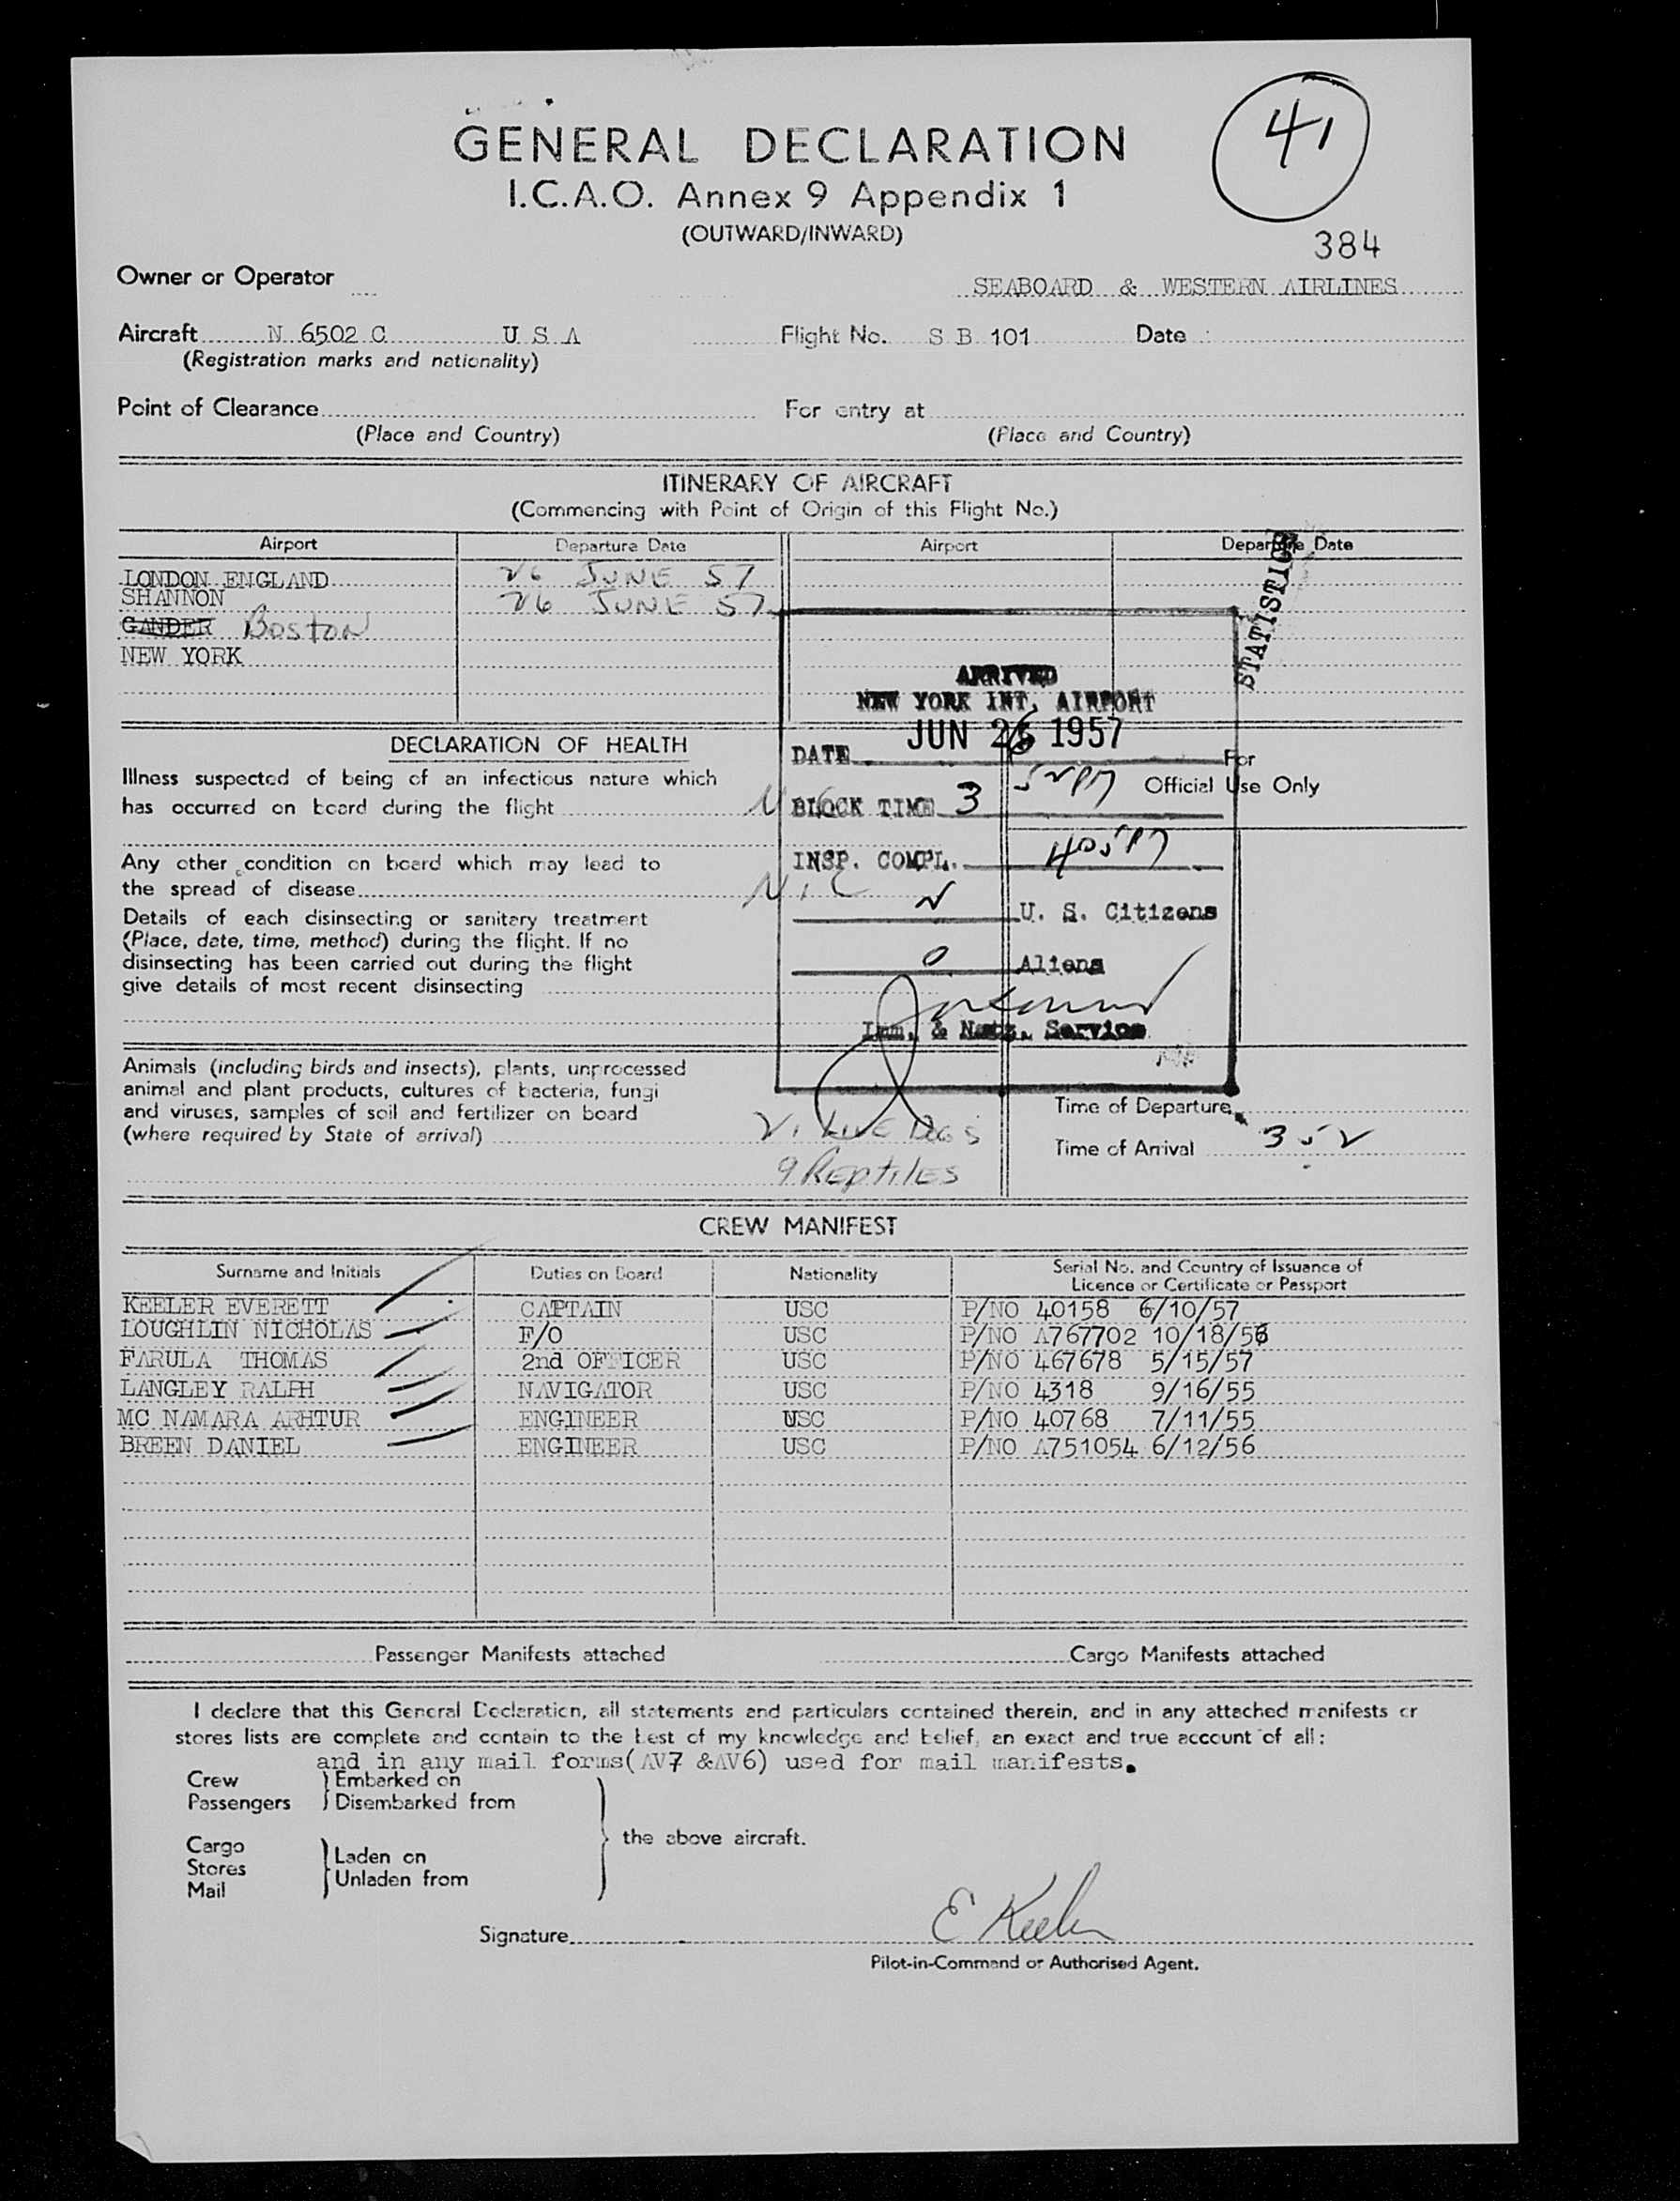 GENERAL DECLARATION
41
I.C.A.O. Annex 9 Appendix 1
(OUTWARD/INWARD)
384
Owner or Operator SEABOARD & WESTERN AIRLINES
Aircraft N 6502 C U S A Flight No. S B 101 Date
(Registration marks and nationality)
Point of Clearance For entry at
(Place and Country) (Place and Country)
ITINERARY OF AIRCRAFT
(Commencing with Point of Origin of this Flight No.)
Airport Departure Date Airport Departure Date
LONDON ENGLAND 26 JUNE 57
SHANNON 26 JUNE 57
GANDER BOSTON
NEW YORK
STATISTICS
ARRIVED
NEW YORK INT. AIRPORT
DATE JUN 26 1957
BLOCK TIME 3 52 PM
INSP. COMPL. 405 PM
U. S. Citizens
0 Aliens
Imm. & Natz. Service
For
Official Use Only
DECLARATION OF HEALTH
Illness suspected of being of an infectious nature which
has occurred on board during the flight
Any other condition on board which may lead to
the spread of disease
Details of each disinsecting or sanitary treatment
(Place, date, time, method) during the flight. If no
disinsecting has been carried out during the flight
give details of most recent disinsecting
Animals (including birds and insects), plants, unprocessed
animal and plant products, cultures of bacteria, fungi
and viruses, samples of soil and fertilizer on board
(where required by State of arrival) LIVE DOGS
9 REPTILES
Time of Departure
Time of Arrival 352
CREW MANIFEST
Surname and Initials Duties on Board Nationality Serial No. and Country of Issuance of
Licence or Certificate or Passport
KEELER EVERETT CAPTAIN USC P/NO 40158 6/10/57
LOUGHLIN NICHOLAS F/O USC P/NO A767702 10/18/56
FARULA THOMAS 2nd OFFICER USC P/NO 467678 5/15/57
LANGLEY RALPH NAVIGATOR USC P/NO 4318 9/16/55
MC NAMARA ARHTUR ENGINEER USC P/NO 40768 7/11/55
BREEN DANIEL ENGINEER USC P/NO A751054 6/12/56
Passenger Manifests attached Cargo Manifests attached
I declare that this General Declaration, all statements and particulars contained therein, and in any attached manifests or
stores lists are complete and contain to the best of my knowledge and belief, an exact and true account of all:
and in any mail forms(AV7 &AV6) used for mail manifests.
Crew Embarked on
Passengers Disembarked from
the above aircraft.
Cargo
Stores Laden on
Mail Unladen from
Signature E Keeler
Pilot-in-Command or Authorised Agent.